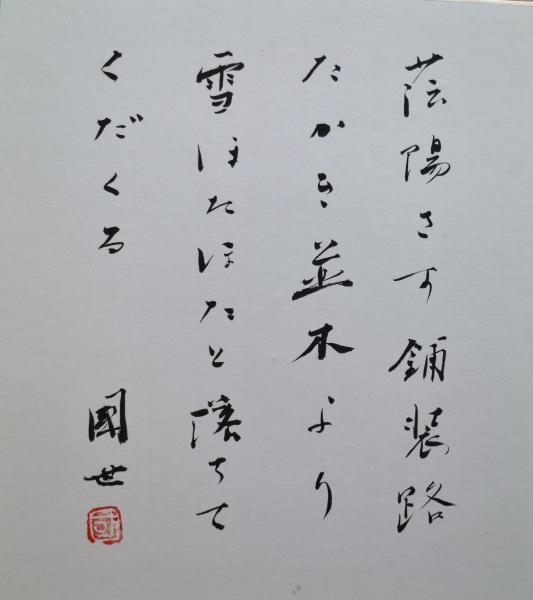 蔭陽さす鋪装路
たかき並木より
雪ほたほたと落ちて
くだくる
國世